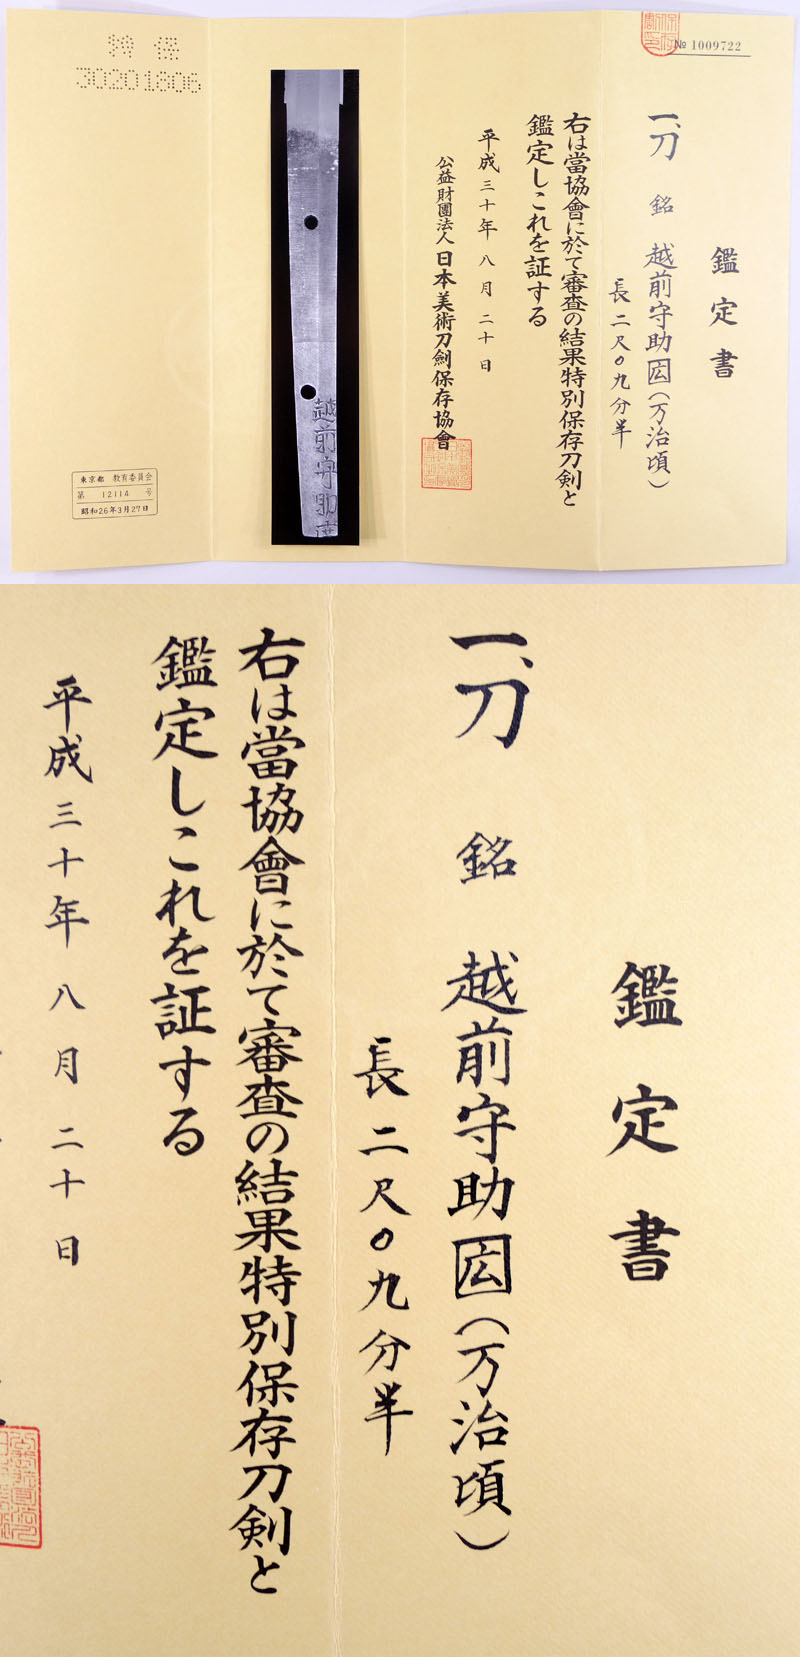 № 1009722
鑑定書
一、刀 銘 越前守助広(万治頃)
長二尺〇九分半
右は當協會に於て審査の結果特別保存刀剣と
鑑定しこれを証する
平成三十年八月二十日
公益財團法人日本美術刀劍保存協會
越前守助
特保
30201806
東京都 教育委員会
第 12114 号
昭和26年3月27日
鑑定書
一、刀 銘 越前守助広(万治頃)
長二尺〇九分半
右は當協會に於て審査の結果特別保存刀剣と
鑑定しこれを証する
平成三十年八月二十日